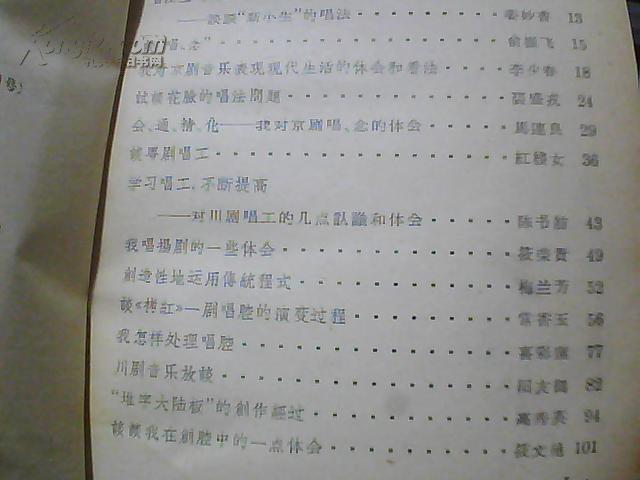 ——谈谈“新小生”的唱法 姜妙香 13
唱、念” 俞振飞 15
我对京剧音乐表现现代生活的体会和看法 李少春 18
试谈花脸的唱法問題 24
会、通、精、化——我对京剧唱、念的体会 馬連良 29
談粤剧唱工 紅綫女 36
学习唱工，不断提高
——对川剧唱工的几点認識和体会 陈书舫 43
我唱揚剧的一些体会 49
創造性地运用傳統程式 梅兰芳 53
談《拷紅》一剧唱腔的演变过程 常香玉 56
我怎样处理唱腔 喜彩蓮 77
川剧音乐放談 82
“堆字大陆板”的創作經过 94
談談我在創腔中的一点体会 101